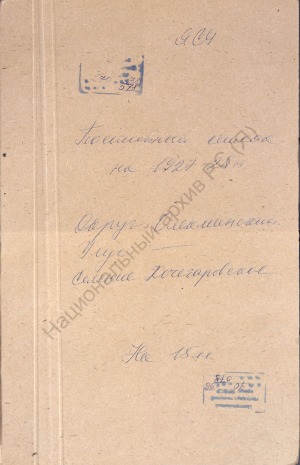 ЯСЧ
Посемейный список
на 1927-28 г.
Округ Олекминский
Улус —
Селение Кочегаровское
На 18 лл.
Национальный архив РС (Я)